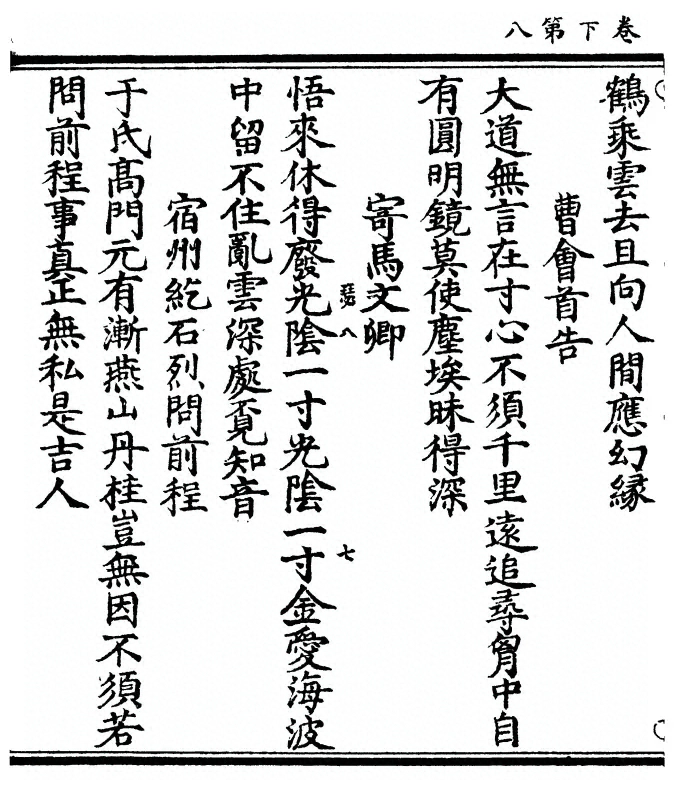 卷下第八
鶴乘雲去且向人間應幻緣
曹會首告
大道無言在寸心不須千里遠追尋胷中自
有圓明鏡莫使塵埃昧得深
寄馬文卿
悟來休得廢光陰一寸光陰一寸金愛海波
瑟八
七
中留不住亂雲深處覔知音
宿州紇石烈問前程
于氏髙門元有漸燕山丹桂豈無因不須若
問前程事真正無私是吉人